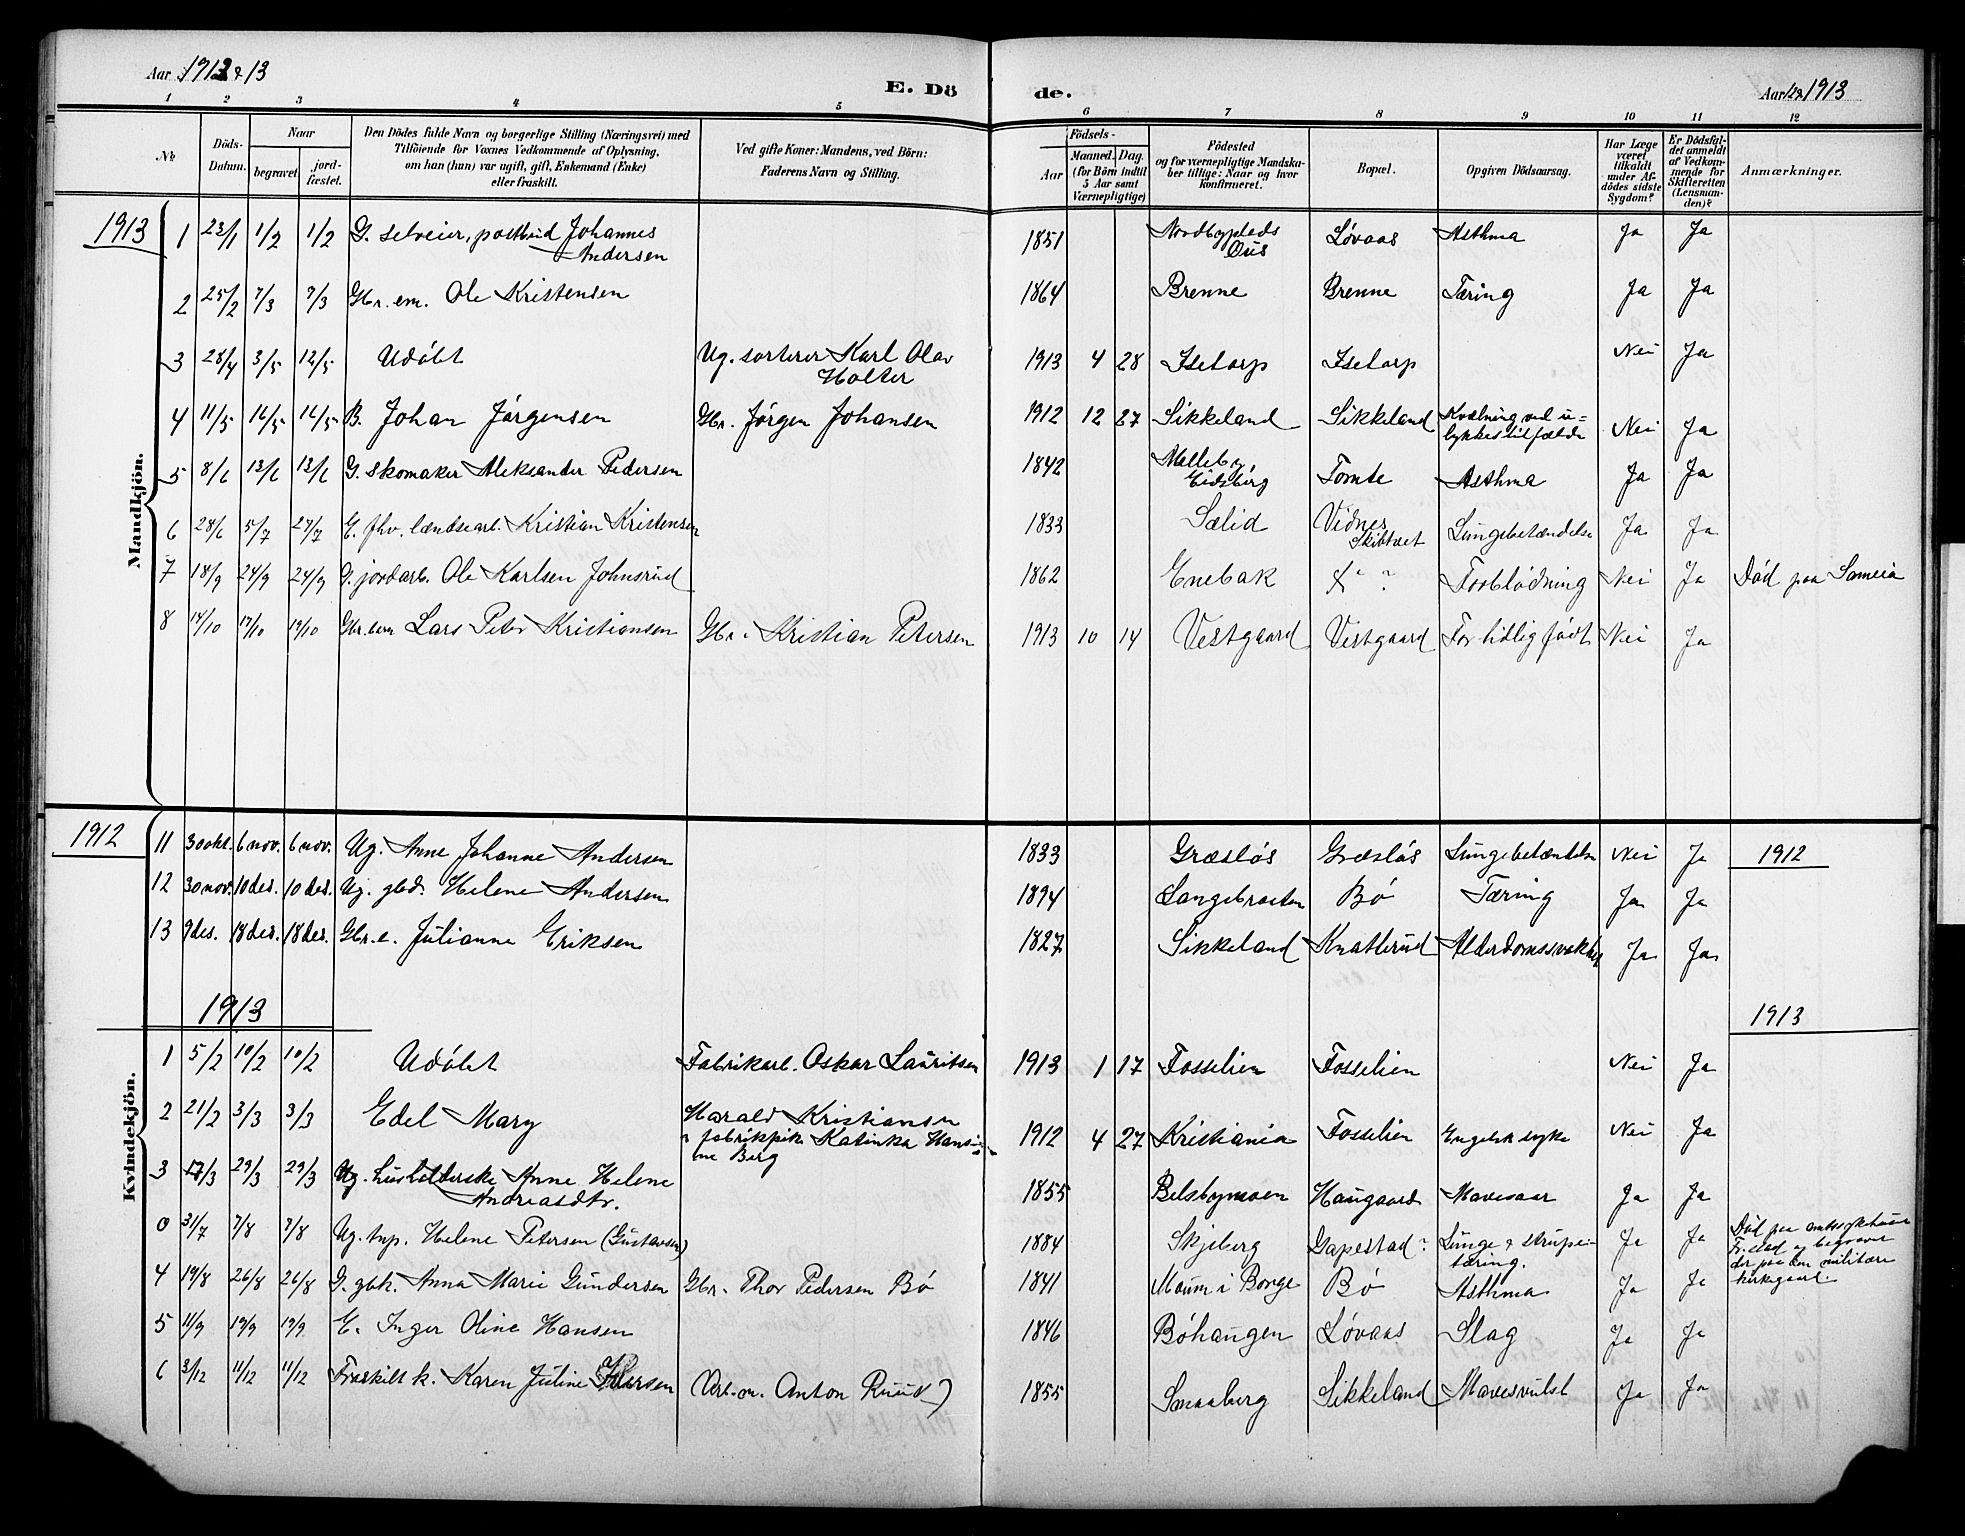 Aar 1912 & 13
E. Dö
de.
Aar 12 & 1913
1 2 3 4 5 6 7 8 9 10 11 12
No
Döds-Datum.
Naar
begravet
jord-fæstet.
Den Dödes fulde Navn og borgerlige Stilling (Næringsvei) med
Tilföiende for Voxnes Vedkommende af Oplysning,
om han (hun) var ugift, gift, Enkemand (Enke)
eller fraskilt.
Ved gifte Koner: Mandens, ved Börn:
Faderens Navn og Stilling.
Födsels-
Aar
Maaned. Dag.
(for Börn indtil
5 Aar samt
Værnepligtige)
Födested
og for værnepligtige Mandska-
ber tillige: Naar og hvor
konfirmeret.
Bopæl.
Opgiven Dödsaarsag.
Har Læge
været
tilkaldt
under Af-
dödes sidste
Sygdom?
Er Dödsfal-
det anmeldt
af Vedkom-
mende for
Skifteretten
(Lensman-
den)?
Anmærkninger.
Mandkjön.
1913 1 23/1 1/2 1/2 G. selveier, postbud Johannes Andersen 1851 Nordbyplads Ous Løvaas Asthma Ja Ja
2 25/2 7/3 7/3 Gbr. em. Ole Kristensen 1864 Brenne Brenne Tæring Ja Ja
3 28/4 3/5 12/5 Udøbt Ug. sorterer Karl Olav Holter 1913 4 28 Isetorp Isetorp Nei Ja
4 11/5 16/5 16/5 B. Johan Jørgensen Gbr. Jørgen Johansen 1912 12 27 Sikkeland Sikkeland Kvælning ved u-lykkestilfælde Nei Ja
5 8/6 13/6 13/6 G. skomaker Aleksander Pedersen 1842 Melleby Eidsberg Tomte Asthma Ja Ja
6 28/6 5/7 27/7 E. fhv. lændsearb. Kristian Kristensen 1833 Sælid Vidnes Skibtvet Lungebetændelse Ja Ja
7 18/9 24/9 24/9 G. jordarb. Ole Karlsen Johnsrud 1862 Enebak ? Forblødning Nei Ja Død paa Sameia
8 14/10 19/10 19/10 Gbr. barn Lars Peter Kristiansen Gbr. Kristian Petersen 1913 10 14 Vestgaard Vestgaard For tidlig født Nei Ja
1912 11 30 okt. 6 nov. 6 nov. Ug. Anne Johanne Andersen 1833 Græsløs Græsløs Lungebetændelse Nei Ja 1912
12 30 nov. 10 des. 10 des. Ug. gbd. Helene Andersen 1894 Langebraaten Bø Tæring Ja Ja
13 9 des. 18 des. 18 des. Gbr. e. Julianne Eriksen 1827 Sikkeland Knatterud Alderdomssvakhet Ja Ja
1913
1913
Kvindekjön.
1 5/2 10/2 10/2 Udøbt Fabrikarb. Oskar Lauritsen 1913 1 17 Fosselien Fosselien Nei Ja
2 21/2 3/3 3/3 Edel Mary Harald Kristiansen & fabrikpike Katinka Hansi-ne Berg 1912 4 27 Kristiania Fosselien Engelsk syke Nei Ja
3 17/3 29/3 29/3 Ug. husholderske Anne Helene Andreasdtr. 1855 Belsbymoen Haugaard Mavesaar Ja Ja
0 31/7 7/8 7/8 Ug. tnp. Helene Petersen (Gustavsen) 1884 Skjeberg Gapestad? Lunge & strupe-tæring. Ja Ja Død paa amtssykehuset Fr.stad og begravet der paa den militære kirkegaard.
4 19/8 26/8 26/8 G. gbk. Anna Marie Gundersen Gbr. Thor Pedersen Bø 1841 Moum i Borge Bø Asthma Ja Ja
5 11/9 19/9 19/9 E. Inger Oline Hansen 1846 Bøhaugen Løvaas Slag Ja Ja
6 3/12 11/12 11/12 Fraskilt k. Karen Juline (Arb.m. Anton Ruud) 1855 Smaaberg Sikkeland Mavesvulst Ja Ja